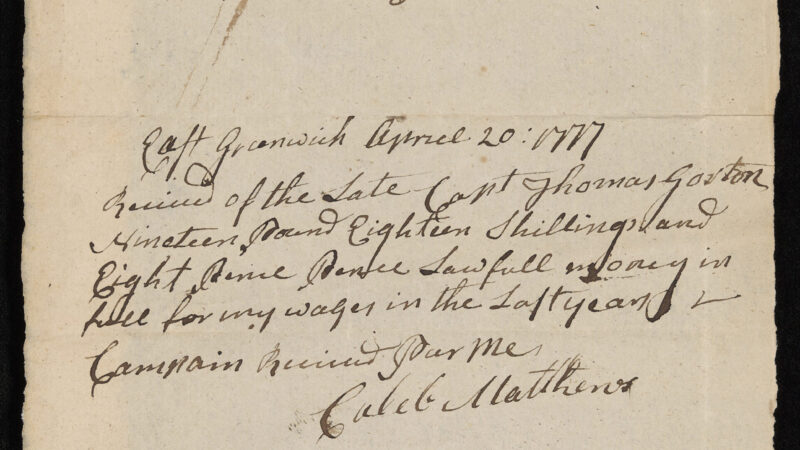 East Greenwich Apriel 20: 1777
Recived of the Late Capt Thomas Gorton
Nineteen Pound Eighteen Shillings and
Eight Pence Pence Lawfull money in
full for my wages in the Last years
Campain Recived Pur Me
Caleb Matthews